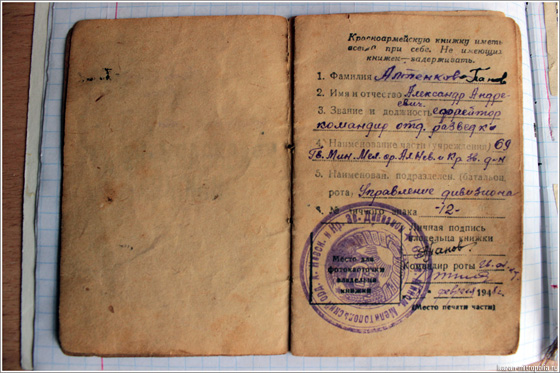 Красноармейскую книжку иметь
всегда при себе. Не имеющих
книжек—задерживать.
1. Фамилия Панов
2. Имя и отчество Александр Андре-
евич.
3. Звание и должность ефрейтор
командир отд. разведки
4. Наименование части (учреждения) 69
Гв. Мин. Мел. ор. Ал. Нев. и Кр. Зв. д-н
5. Наименован. подразделен. (батальон,
рота) Управление дивизиона
личного знака -12-
Личная подпись
владельца книжки
Панов
Командир роты
194
(Место печати части)
Место для
фотокарточки
владельца
книжки